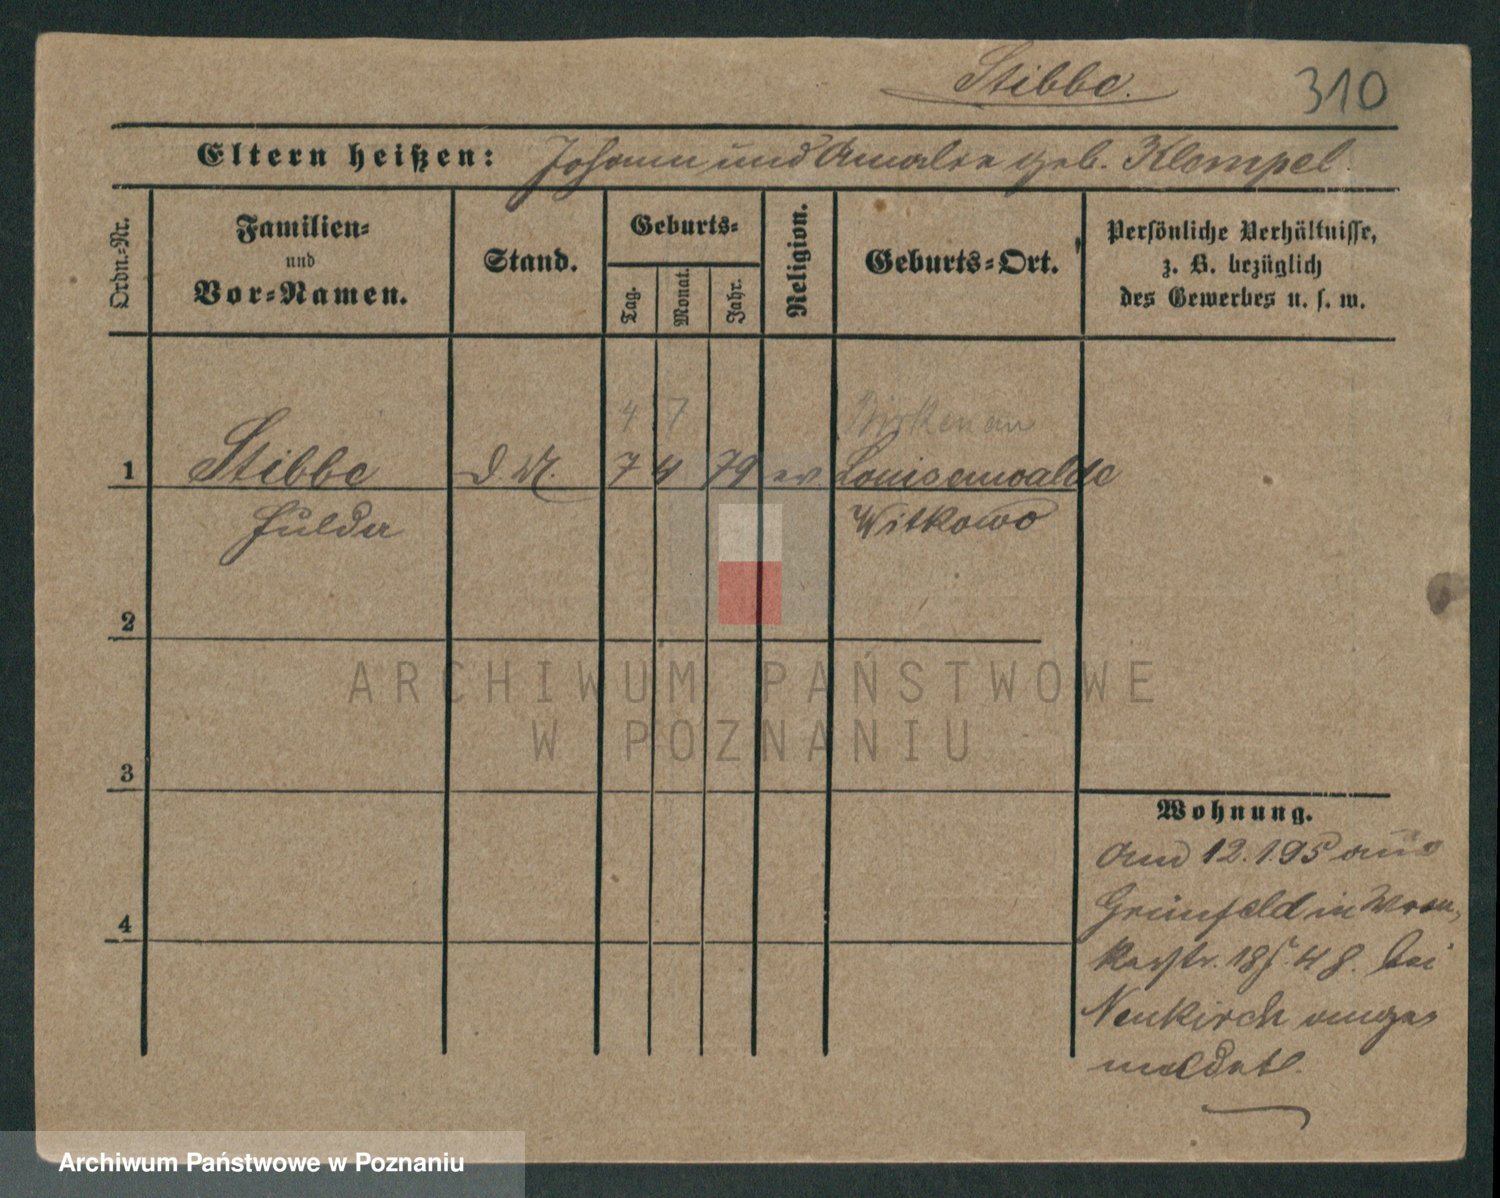 Stibbe. 310
Eltern heißen: Johann und Amalie geb. Klempel.
Ordn.-Nr.
Familien-
und
Vor-Namen.
Stand.
Geburts-
Tag.
Monat.
Jahr.
Religion.
Geburts-Ort.
Persönliche Verhältnisse,
z. B. bezüglich
des Gewerbes u. s. w.
4 7 Birkenau
1 Stibbe D. M. 7 4 79 ev Louisenwalde
Hulda Witkowo
2
ARCHIWUM PAŃSTWOWE
W POZNANIU
3
Wohnung.
Am 12.1.95 aus
Grünfeld in Wron-
4
kerstr. bei
Neukirch ange-
meldet.
Archiwum Państwowe w Poznaniu